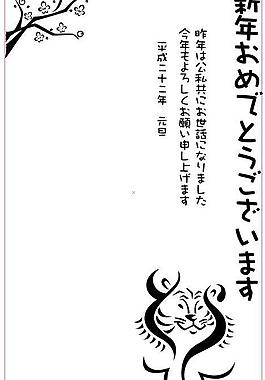 新年おめでとうございます
昨年は公私共にお世話になりました
今年もよろしくお願い申し上げます
平成二十二年　元旦